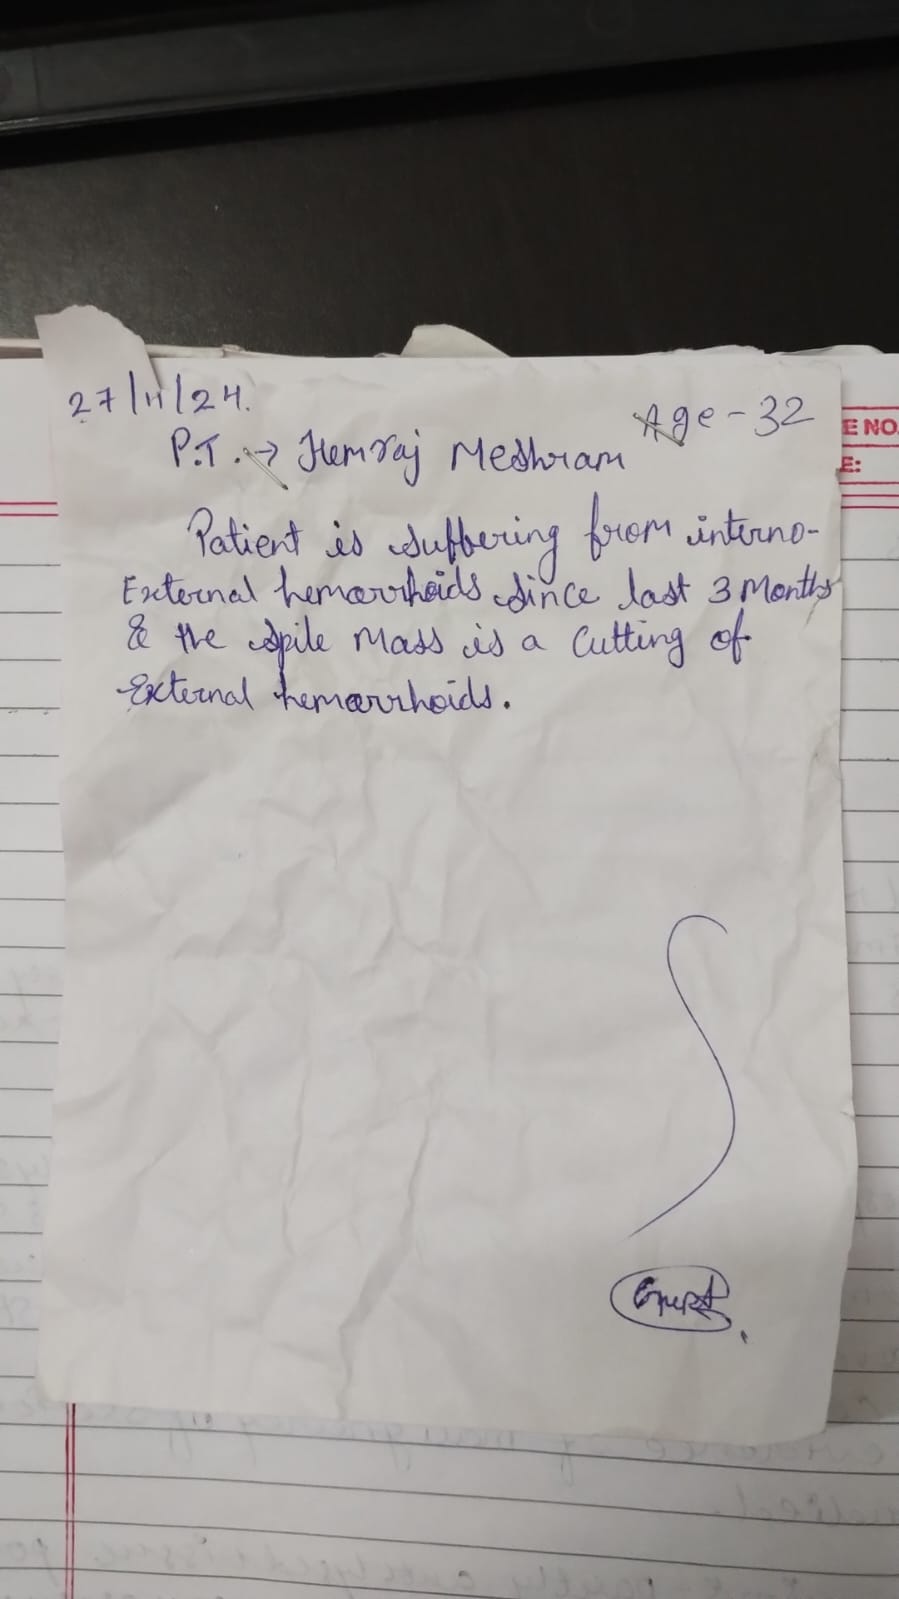 27/11/24.
Age - 32
P.T. → Hemraj Meshram
Patient is suffering from interno-
External hemorrhoids since last 3 Months
& the spile Mass is a Cutting of
External hemorrhoids.
E NO.
E: